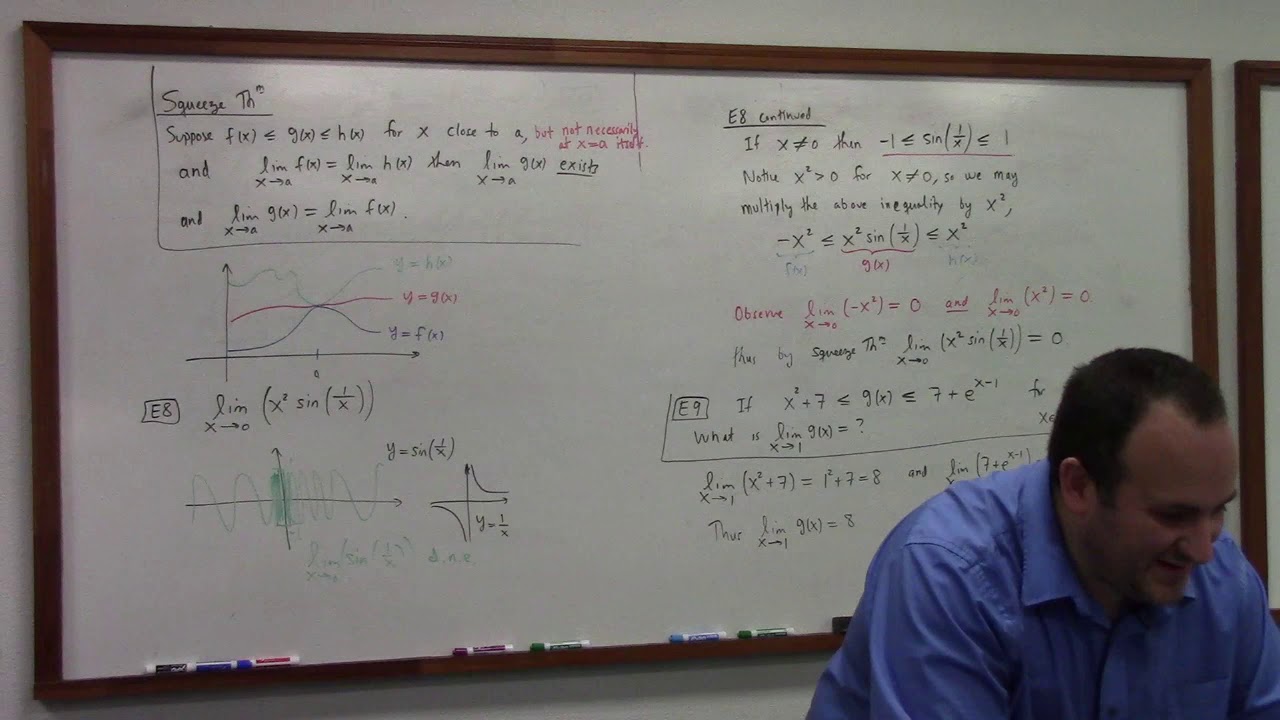 Squeeze Thm
Suppose f(x) ≤ g(x) ≤ h(x) for x close to a, but not necessarily
at x=a itself.
and lim x→a f(x) = lim x→a h(x) then lim x→a g(x) exists
and lim x→a g(x) = lim x→a f(x).
y = h(x)
y = g(x)
y = f(x)
a
E8 lim x→0 (x² sin(1/x))
y = sin(1/x)
y = 1/x
lim x→0 (sin(1/x)) d.n.e.
E8 continued
If x≠0 then -1 ≤ sin(1/x) ≤ 1
Notice x² > 0 for x≠0, so we may
multiply the above inequality by x²,
-x² ≤ x² sin(1/x) ≤ x²
f(x) g(x) h(x)
Observe lim x→0 (-x²) = 0 and lim x→0 (x²) = 0.
thus by squeeze Thm lim x→0 (x² sin(1/x)) = 0
E9 If x²+7 ≤ g(x) ≤ 7+e^(x-1) for
What is lim x→1 g(x) = ?
lim x→1 (x²+7) = 1²+7 = 8 and lim (7+e^(x-1))
Thus lim x→1 g(x) = 8